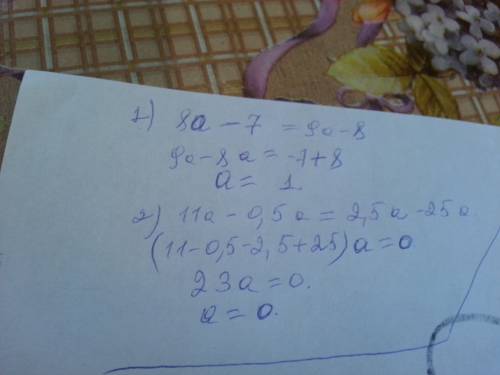 1) 8a - 7 = 9a - 8
9a - 8a = -7 + 8
a = 1.
2) 11a - 0,5a = 2,5a - 25a
(11 - 0,5 - 2,5 + 25)a = 0
23a = 0.
a = 0.